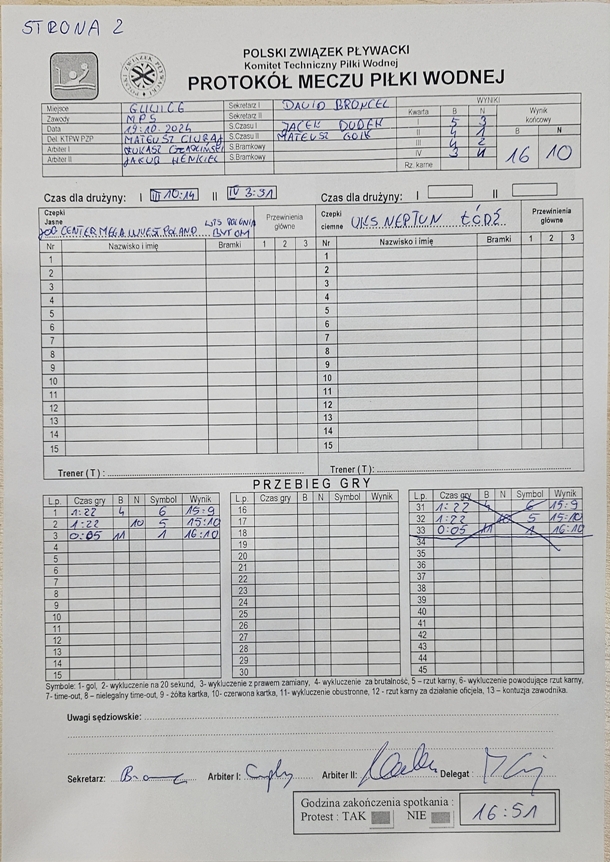 STRONA 2
POLSKI ZWIĄZEK PŁYWACKI
Komitet Techniczny Piłki Wodnej
PROTOKÓŁ MECZU PIŁKI WODNEJ
POLSKI ZWIĄZEK PŁYWACKI
Miejsce GLIWICE Sekretarz I DAVID BRONCEL WYNIKI
Zawody MPS Sekretarz II Kwarta B N Wynik końcowy
Data 19.10.2024 S.Czasu I JACEK DUDEK I 5 3 B N
Del. KTPW PZP MATEUSZ CIURAJ S.Czasu II MATEUSZ GOIK II 4 1
Arbiter I S.Bramkowy III 4 2 16 10
Arbiter II JAKUB HENKIEL S.Bramkowy IV 3 4
Rz. karne
Czas dla drużyny: I III 10:14 II IV 3:31 Czas dla drużyny: I II
Czepki Jasne JOB CENTER MEGA INVEST POLAND WTS POLONIA BYTOM Przewinienia główne Czepki ciemne UKS NEPTUN ŁÓDŹ Przewinienia główne
Nr Nazwisko i imię Bramki 1 2 3 Nr Nazwisko i imię Bramki 1 2 3
1 1
2 2
3 3
4 4
5 5
6 6
7 7
8 8
9 9
10 10
11 11
12 12
13 13
14 14
15 15
Trener ( T ) : Trener ( T ) :
PRZEBIEG GRY
L.p. Czas gry B N Symbol Wynik L.p. Czas gry B N Symbol Wynik L.p. Czas gry B N Symbol Wynik
1 1:22 4 6 15:9 16 31 1:22 4 6 15:9
2 1:22 10 5 15:10 17 32 1:22 10 5 15:10
3 0:05 11 1 16:10 18 33 0:05 11 1 16:10
4 19 34
5 20 35
6 21 36
7 22 37
8 23 38
9 24 39
10 25 40
11 26 41
12 27 42
13 28 43
14 29 44
15 30 45
Symbole: 1- gol, 2- wykluczenie na 20 sekund, 3- wykluczenie z prawem zamiany, 4- wykluczenie za brutalność, 5 – rzut karny, 6- wykluczenie powodujące rzut karny,
7- time-out, 8 – nielegalny time-out, 9 - żółta kartka, 10- czerwona kartka, 11- wykluczenie obustronne, 12 - rzut karny za działanie oficjela, 13 – kontuzja zawodnika.
Uwagi sędziowskie:
Sekretarz: Arbiter I: Arbiter II: Delegat :
Godzina zakończenia spotkania : 16:51
Protest : TAK NIE